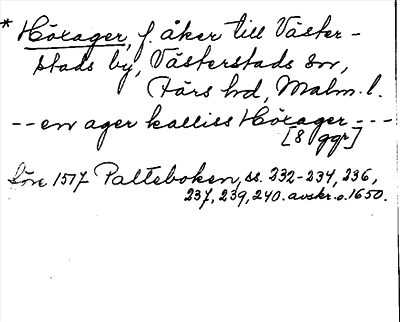 * Höxager, f. åker till Väster-
stads by, Västerstads sn,
Färs hd, Malm. l.
-- en ager kalliss Höxager ---
[8 ggr]
Före 1517 Palteboken, ss. 232-234, 236,
237, 239, 240. avskr. o. 1650.